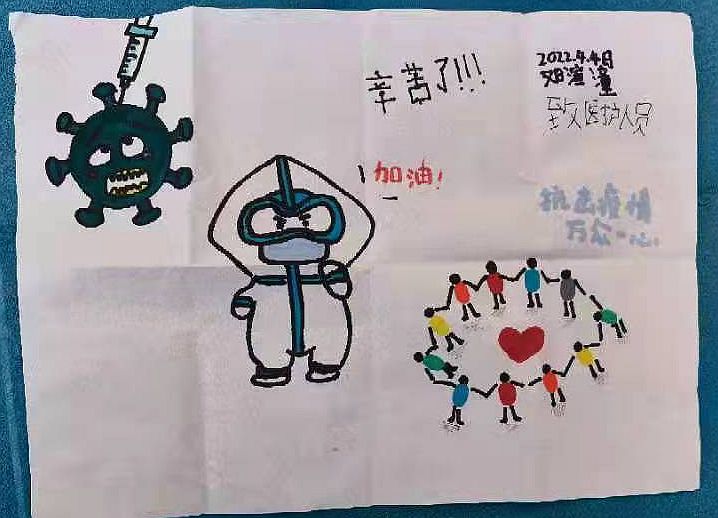 辛苦了!!!
2022.4.4日
致医护人员
加油!
抗击疫情
万众一心